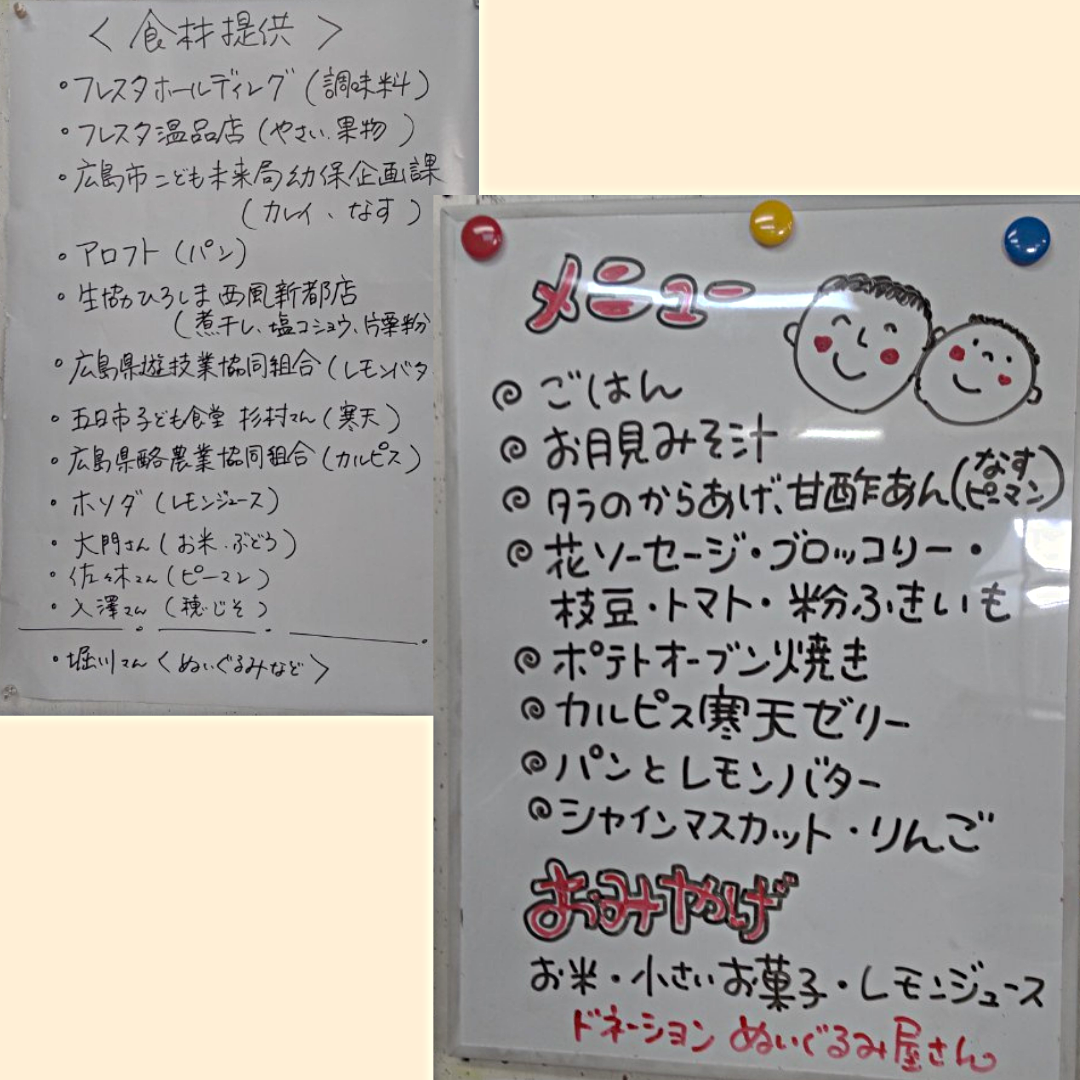 ＜食材提供＞
・フレスタホールディング（調味料）
・フレスタ温品店（やさい、果物）
・広島市こども未来局幼保企画課
（カレイ、なす）
・アロフト（パン）
・生協ひろしま西風新都店
（煮干し、塩コショウ、片栗粉
・広島県遊技業協同組合（レモンバタ
・五日市子ども食堂 杉村さん（寒天）
・広島県酪農業協同組合（カルピス）
・ホソダ（レモンジュース）
・大門さん（お米、ぶどう）
・佐々木さん（ピーマン）
・入澤さん（穂じそ）
・堀川さん＜ぬいぐるみなど＞
メニュー
ごはん
お月見みそ汁
タラのからあげ、甘酢あん（なす
ピーマン）
花ソーセージ・ブロッコリー・
枝豆・トマト・粉ふきいも
ポテトオーブン焼き
カルピス寒天ゼリー
パンとレモンバター
シャインマスカット・りんご
おみやげ
お米・小さいお菓子・レモンジュース
ドネーション ぬいぐるみ屋さん